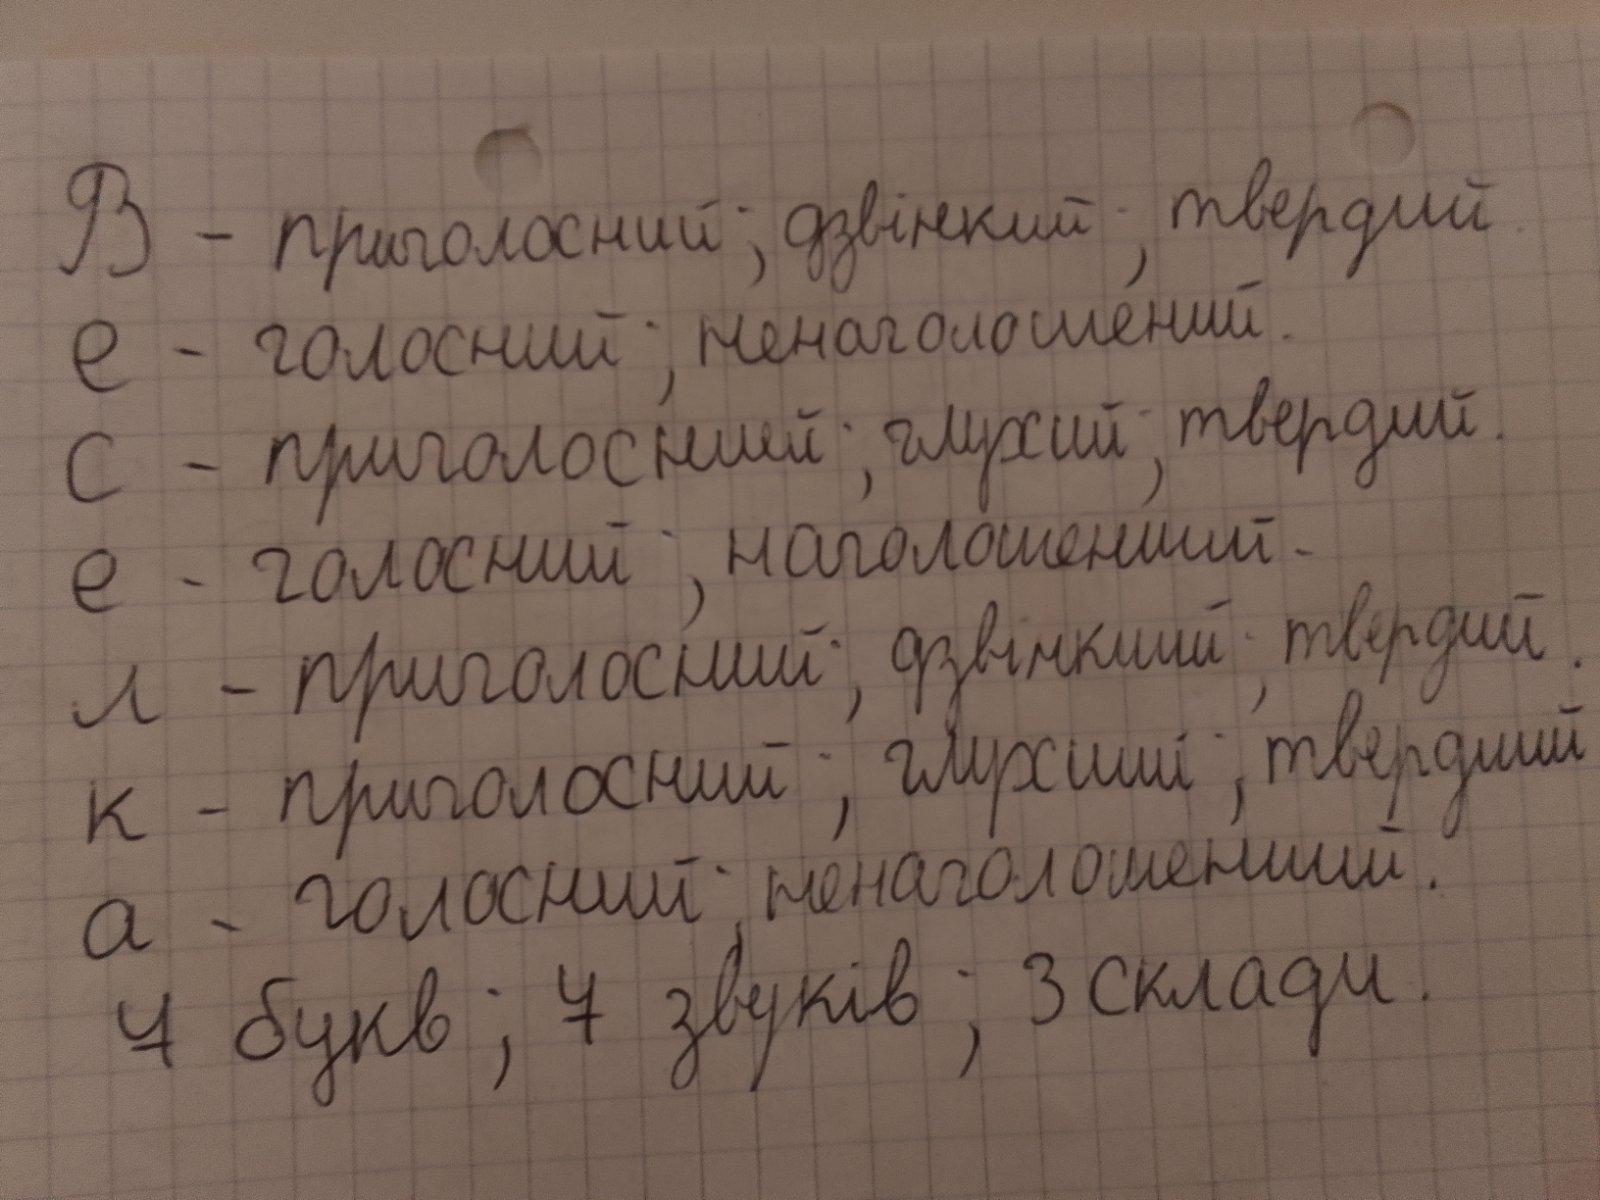 В - приголосний; дзвінкий; твердий.
е - голосний; ненаголошений.
с - приголосний; глухий; твердий.
е - голосний; наголошений.
л - приголосний; дзвінкий; твердий.
к - приголосний; глухий; твердий
а - голосний; ненаголошений.
7 букв; 7 звуків; 3 склади.